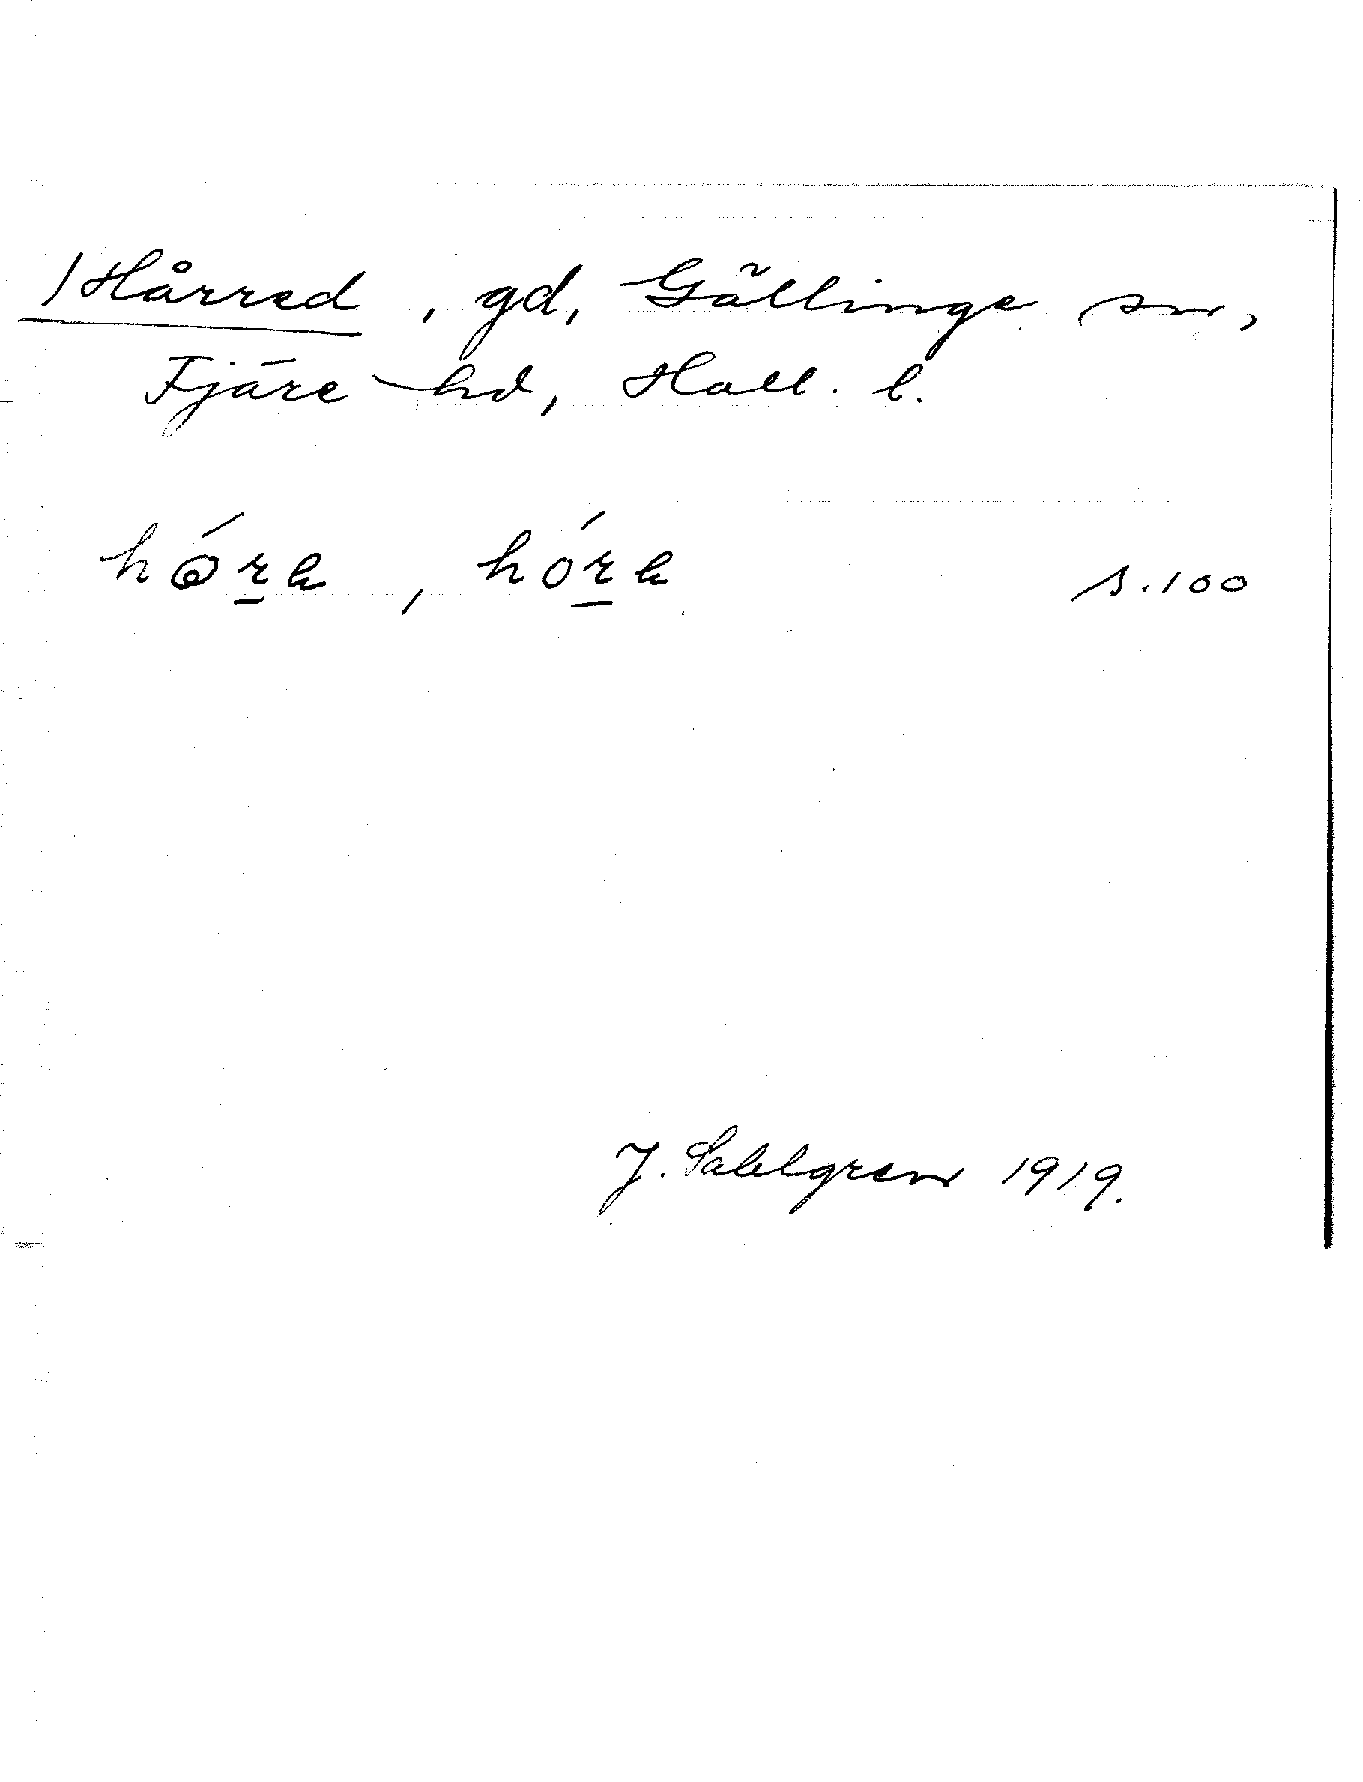 /Hårred, gd, Gällinge sn,
Fjäre hd, Hall. l.
s.100
J. Sahlgren 1919.